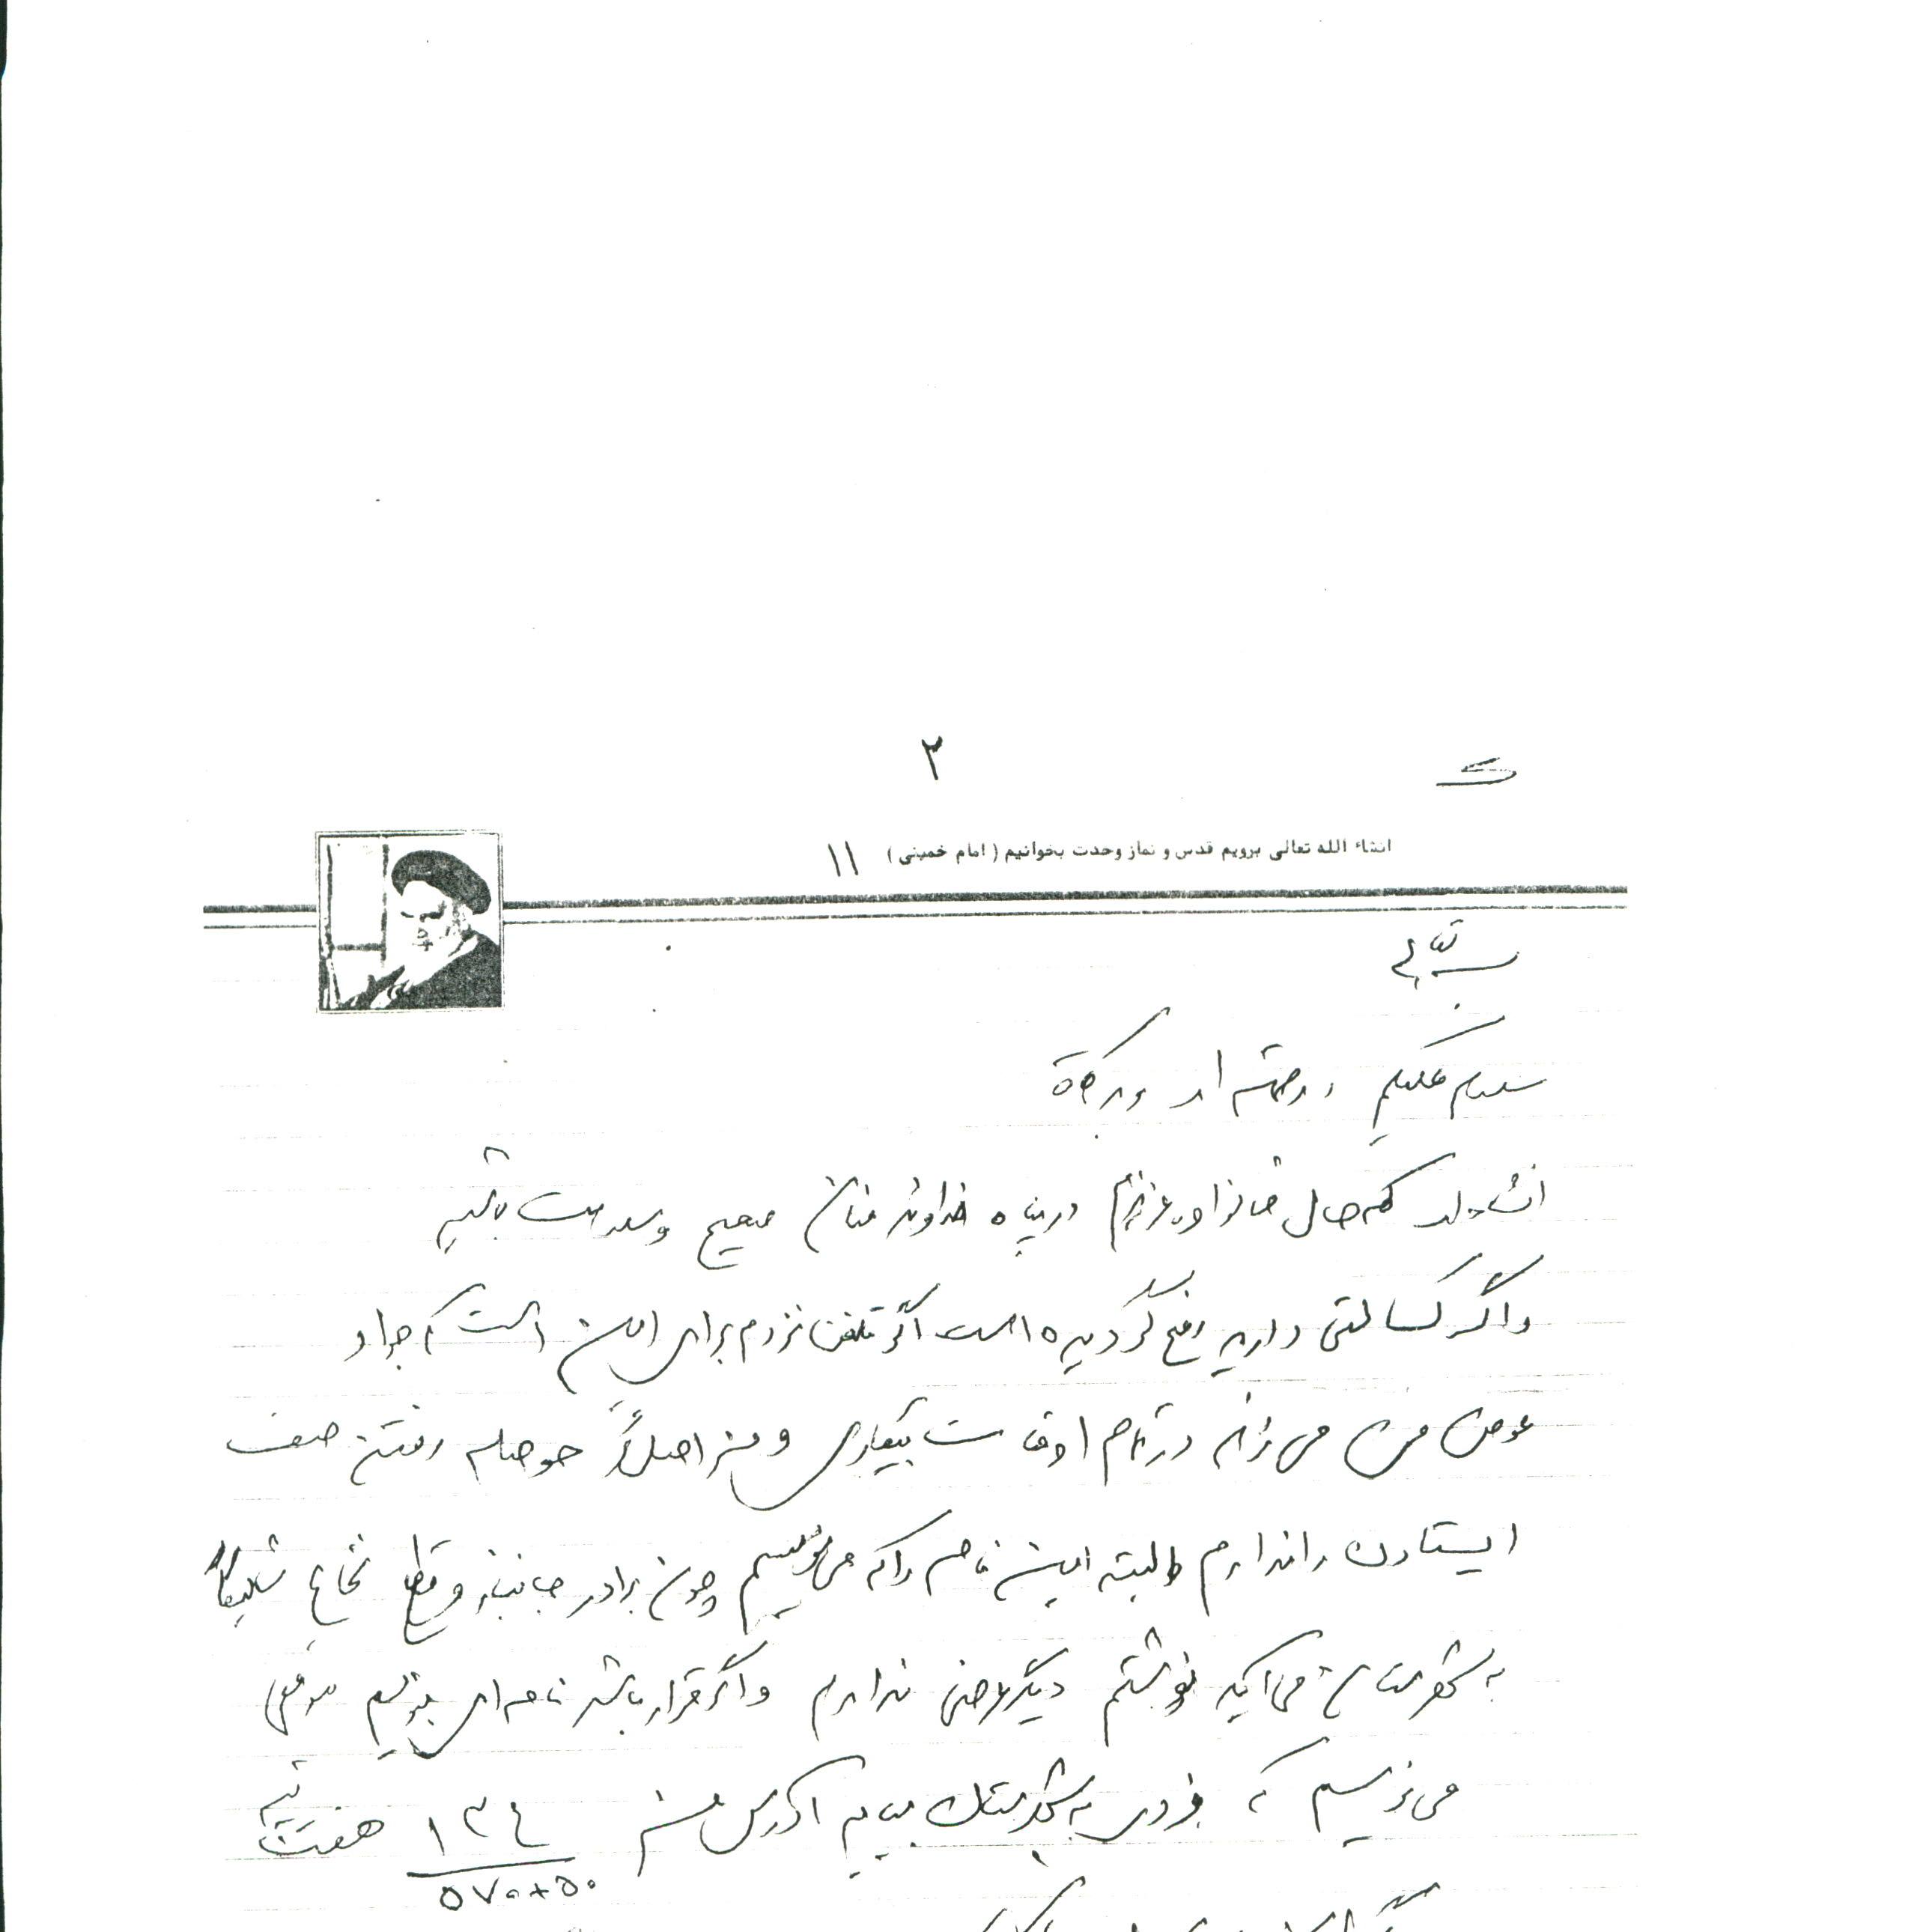 ۲
انشاء الله تعالی برویم قدس و نماز وحدت بخوانیم ( امام خمینی ) ۱۱
سلام علیکم و رحمته اله و برکاة
انشاءاله که حال خانواده عزیزم در پناه خداوند منان صحیح و سلامت باشید
و اگر کسالتی دارید رفع گردیده است اگر تلفن نزدم برای این است که جواد
عوض من می زند در تمام اوقات بیکاری و من اصلاً حوصله رفتن صف
ایستادن را ندارم البته این نامه را که می نویسم چون برادر جانباز و قطع نخاع
به شهرستان می آید نوشتم دیگر عرضی ندارم و اگر قرار باشد نامه ای بنویسم موقعی
می نویسم که بزودی به شهرستان بیایم آدرس من ۱۳۴ هفت تیر
۵۷۰۸۵۰